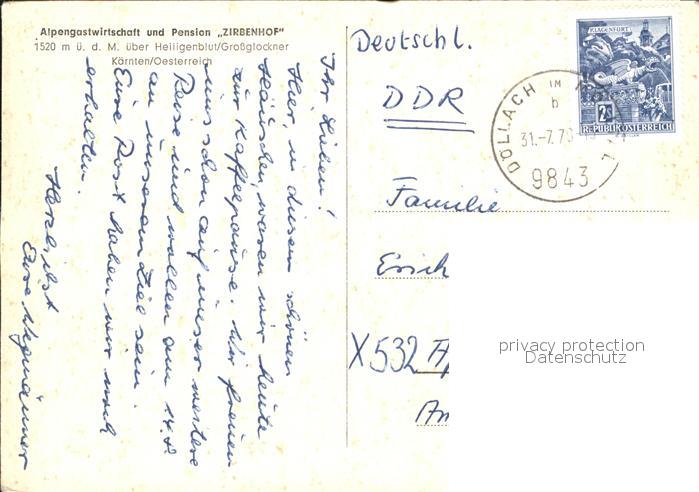 Alpengastwirtschaft und Pension „ZIRBENHOF"
1520 m ü. d. M. über Heiligenblut/Großglockner
Kärnten/Oesterreich
Ihr Lieben!
Hier, in diesem schönen
Häuschen, waren wir heute
zur Kaffeepause. Wir freuen
uns schon auf unser weitere
Reise und wollen am 14.8.
an unserem Ziel sein.
Eure Post haben wir noch
erhalten.
Herzlichst
Eure
Deutschl.
DDR
Familie
Erich
X532
KLAGENFURT
2S
REPUBLIK ÖSTERREICH
DÖLLACH IM
b
31.-7.70
9843
privacy protection
Datenschutz